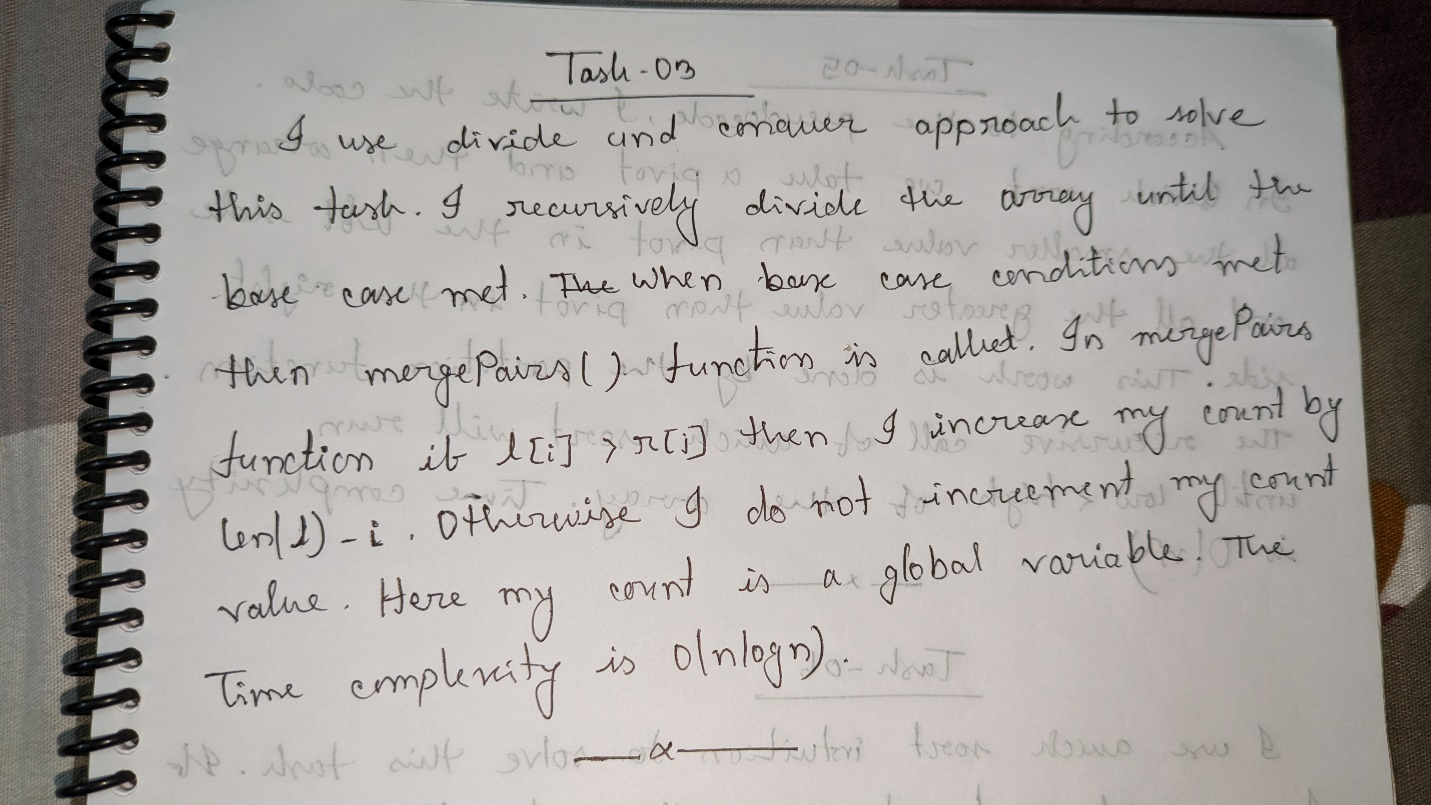 Task-03
I use divide and conquer approach to solve
this task. I recursively divide the array until the
base case met. The When base case conditions met
then mergePairs() function is called. In mergePairs
function if l[i] > r[j] then I increase my count by
len(l) - i. Otherwise I do not increement my count
value. Here my count is a global variable. The
Time complexity is O(nlogn).